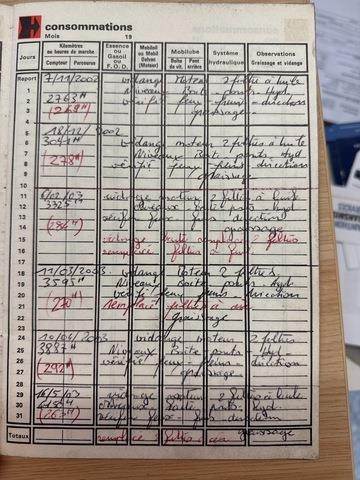 consommations
Mois 19
Jours
Kilomètres ou heures de marche
Compteur Parcourus
Essence ou Gasoil ou F.O.D.
Mobiloil ou Mobil Delvac (Moteur)
Mobilube
Boîte de vit. Pont arrière
Système hydraulique
Observations
Graissage et vidange
Report 7/11/2002 vidange Moteur 2 filtres à huile
1 Niveaux Boite - ponts - Hyd.
2 2763H vérifié feux - freins - direction
3 (269H) graissage
4
5 18/12/2002
6 3041H vidange moteur 2 filtres à huile
7 (278H) Niveaux Boite ponts - Hyd
8 vérifié feux freins direction
9 graissage
10
11 vidange moteur 2 filtres à huile
12 3325H Boite ponts Hyd
13 vérifier feux - freins direction
14 (284H) graissage
15 vidange remplacé 2 filtres
16 remplacé filtres à
17
18 11/03/2003 vidange Moteur 2 filtres
19 3595H Niveaux Boite ponts - Hyd
20 vérifié feux - freins - direction
21 (270H) remplacé filtres à air
22 graissage
23
24 10/04/2003 vidange moteur 2 filtres
25 3887H Niveaux Boite ponts - Hyd
26 vérifié feux - freins - direction
27 (292H) graissage
28
29 16/5/03 vidange moteur 2 filtres à huile
30 ponts - Hyd
31 (263H) vérifier feux - freins direction
graissage
Totaux remplacé filtres à air